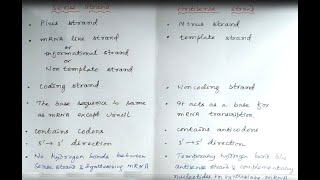 Sense Strand
Antisense Strand
Plus strand
Minus strand
mRNA like strand
or
Informational strand
or
Non template strand
template strand
Coding strand
Noncoding strand
The base sequence is same
as mRNA except Uracil
It acts as a base for
mRNA transcription
contains codons
contains anticodons
5' → 3' direction
3' → 5' direction
No hydrogen bonds between
sense strand & synthesizing mRNA
Temporary hydrogen bonds b/w
antisense strand & complementary
nucleotides in mRNA